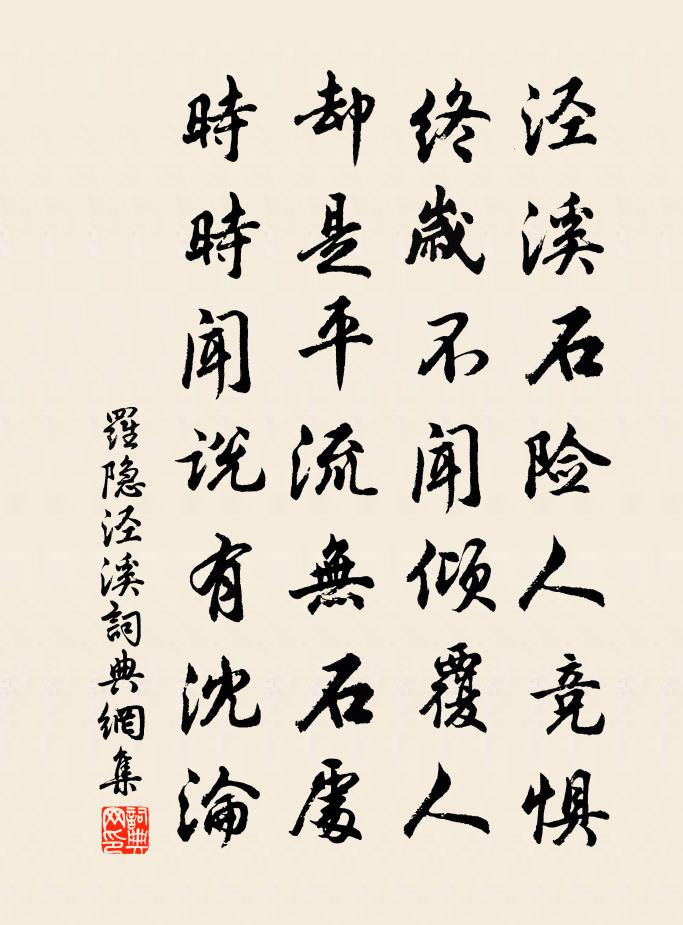 泾溪石险人竞惧
终歳不闻倾覆人
却是平流無石處
時時闻说有沈淪
羅隐泾溪詞典網集
詞典网印